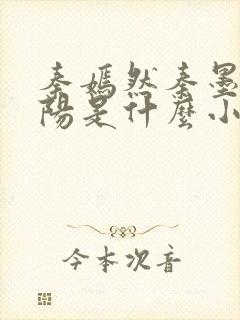 秦嫣然秦墨
阳是什麼小
今本次音